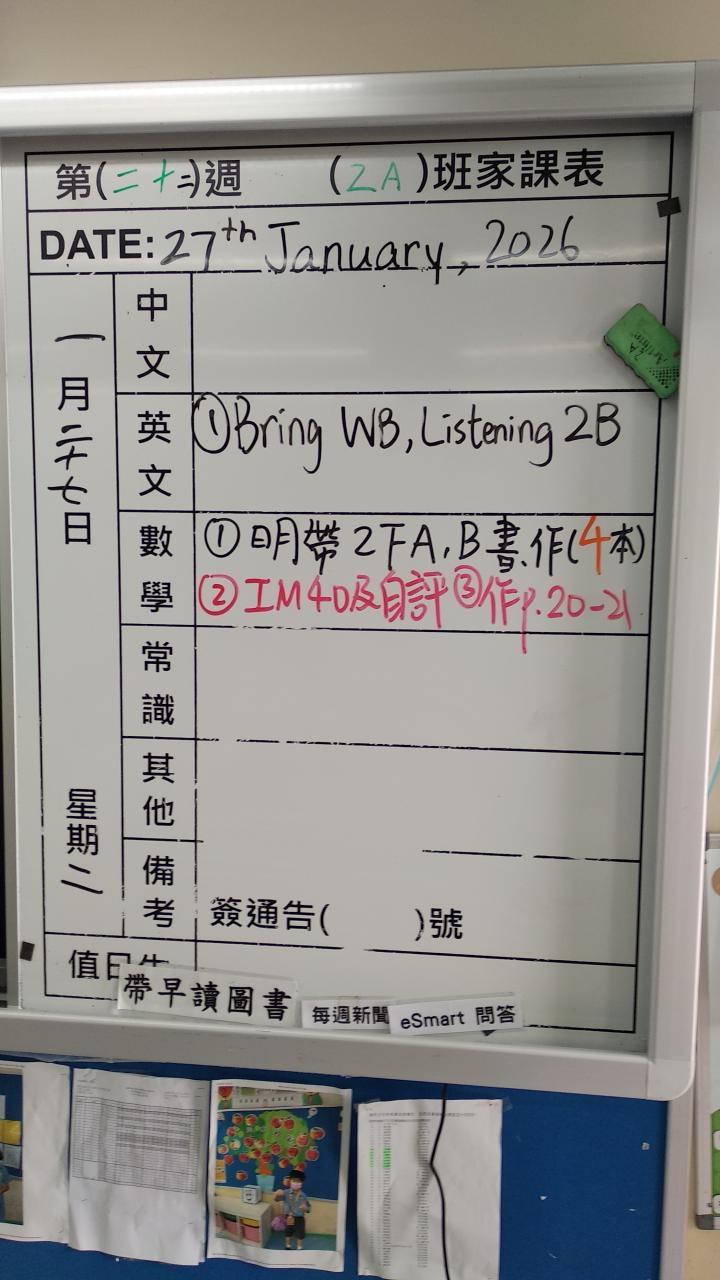 第(二十二)週 (2A)班家課表
DATE: 27th January, 2026
一月二十七日 星期二
中文
英文 ①Bring WB, Listening 2B
數學 ①明帶2下A,B書、作(4本)
②IM4D及自評③作p.20-21
常識
其他
備考 簽通告( )號
值日生
帶早讀圖書 每週新聞 eSmart 問答